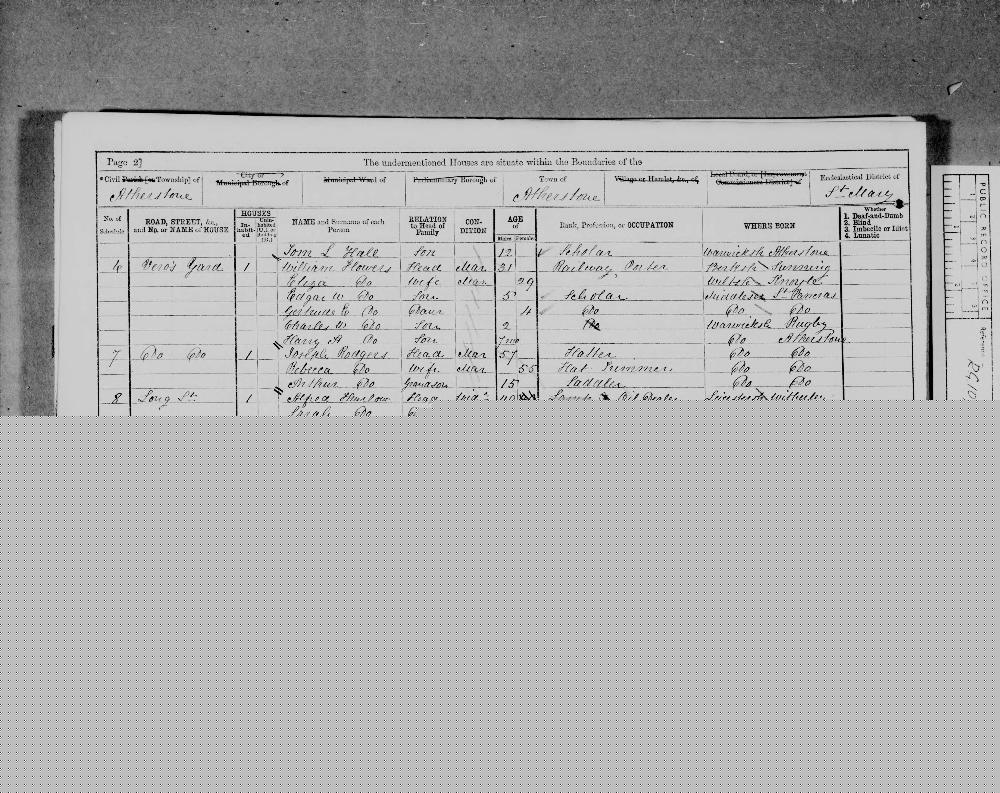 Page 27 The undermentioned Houses are situate within the Boundaries of the
Civil Parish [or Township] of City or Municipal Borough of Municipal Ward of Parliamentary Borough of Town of Village or Hamlet, &c., of Local Board, or [Improvement Commissioners District] of Ecclesiastical District of
Atherstone Atherstone St Mary
No. of Schedule ROAD, STREET, &c., and No. or NAME of HOUSE HOUSES Inhabited Uninhabited (U.) or Building (B.) NAME and Surname of each Person RELATION to Head of Family CONDITION AGE of Males Females Rank, Profession, or OCCUPATION WHERE BORN Whether 1. Deaf-and-Dumb 2. Blind 3. Imbecile or Idiot 4. Lunatic
Tom L Hale Son 12 Scholar Warwicksh Atherstone
6 Vero's Yard 1 William Flowers Head Mar 31 Railway Porter Berksh Sunning
Eliza Do Wife Mar 29 Wiltsh Knoyle
Edgar W Do Son 5 Scholar Middlesex St Pancras
Gertrude E Do Daur 4 Do Do Do
Charles W Do Son 2 Do Warwicksh Rugby
Harry A Do Son 7mo Do Atherstone
7 Do Do 1 Joseph Rodgers Head Mar 57 Hatter Do Do
Rebecca Do Wife Mar 55 Hat Trimmer Do Do
Arthur Do Grandson 15 Saddler Do Do
8 Long St 1 Alfred Head Lamp & Oil Dealer
Sarah Do
PUBLIC RECORD OFFICE
Reference
RG10